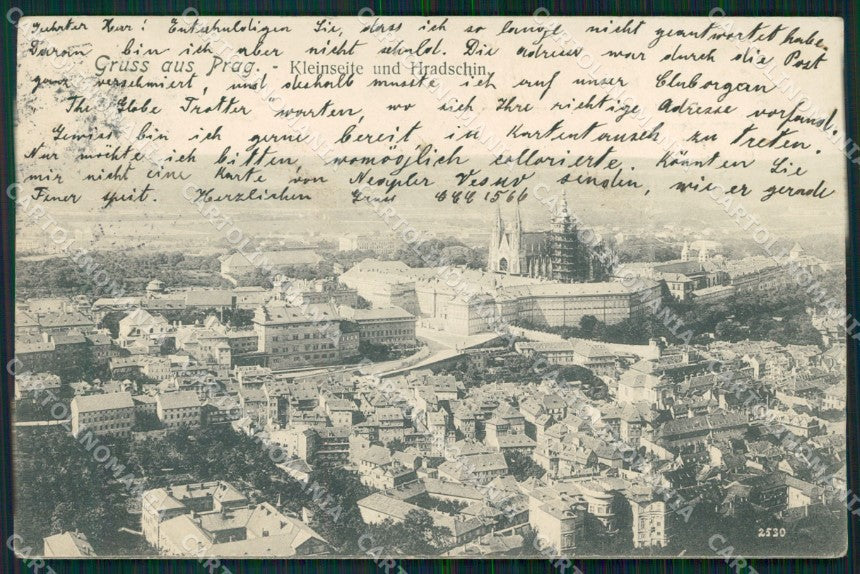 Geehrter Herr! Entschuldigen Sie, dass ich so lange nicht geantwortet habe.
Darom bin ich aber nicht schuld. Die adresse war durch die Post
Gruss aus Prag. - Kleinseite und Hradschin.
ganz verschmiert, und deshalb musste ich auf unser Cluborgan
The Globe Trotter warten, wo ich Ihre richtige Adresse vorfand.
Gewiss bin ich gerne bereit in Kartentausch zu treten.
Nur möchte ich bitten, womöglich collorierte. Könnten Sie
mir nicht eine Karte von Vesuv senden, wie er gerade
Feuer speit. Herzlichen Gruss 1566
2530
CARTOLINOMANIA